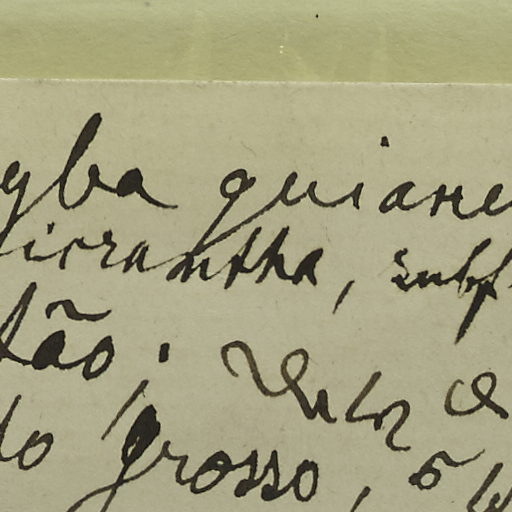 yba guiane
icrantha, subf
tão;
to grosso, 5